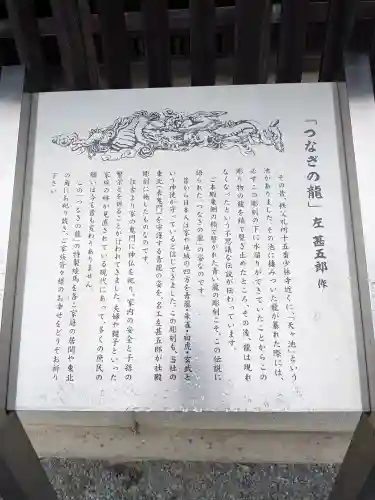 「つなぎの龍」 左 甚五郎 作
その昔、秩父札所十五番少林寺近くに、「天ヶ池」という
池がありました。その池に棲みついた龍が暴れた際には、
必ずこの彫刻の下に水溜りができていたことからこの
彫り物の龍を鎖で繋ぎ止めたところ、その後、龍は現れ
なくなったという不思議な伝説が伝わっています。
ご本殿東側の鎖で繋がれた青い龍の彫刻こそ、この伝説に
語られた「つなぎの龍」の姿なのです。
昔から日本人は家や地域の四方を青龍・朱雀・白虎・玄武と
いう神使が守っていると信じてきました。この彫刻も、当社の
東北(表鬼門)を守護する青龍の姿を、名工左甚五郎が社殿
彫刻に施したものなのです。
往古より家の鬼門に神仏を祀り、家内の安全と子孫の
繁栄を祈ることが行われてきました。夫婦や親子といった
家族の絆が見直されている現代にあって、多くの庶民の
願いは今も昔も変わりありません。
この「つなぎの龍」の特製絵馬を各ご家庭の居間や東北
の角にお祀り戴き、ご家族皆々様のお幸せをどうぞお祈り
下さい。